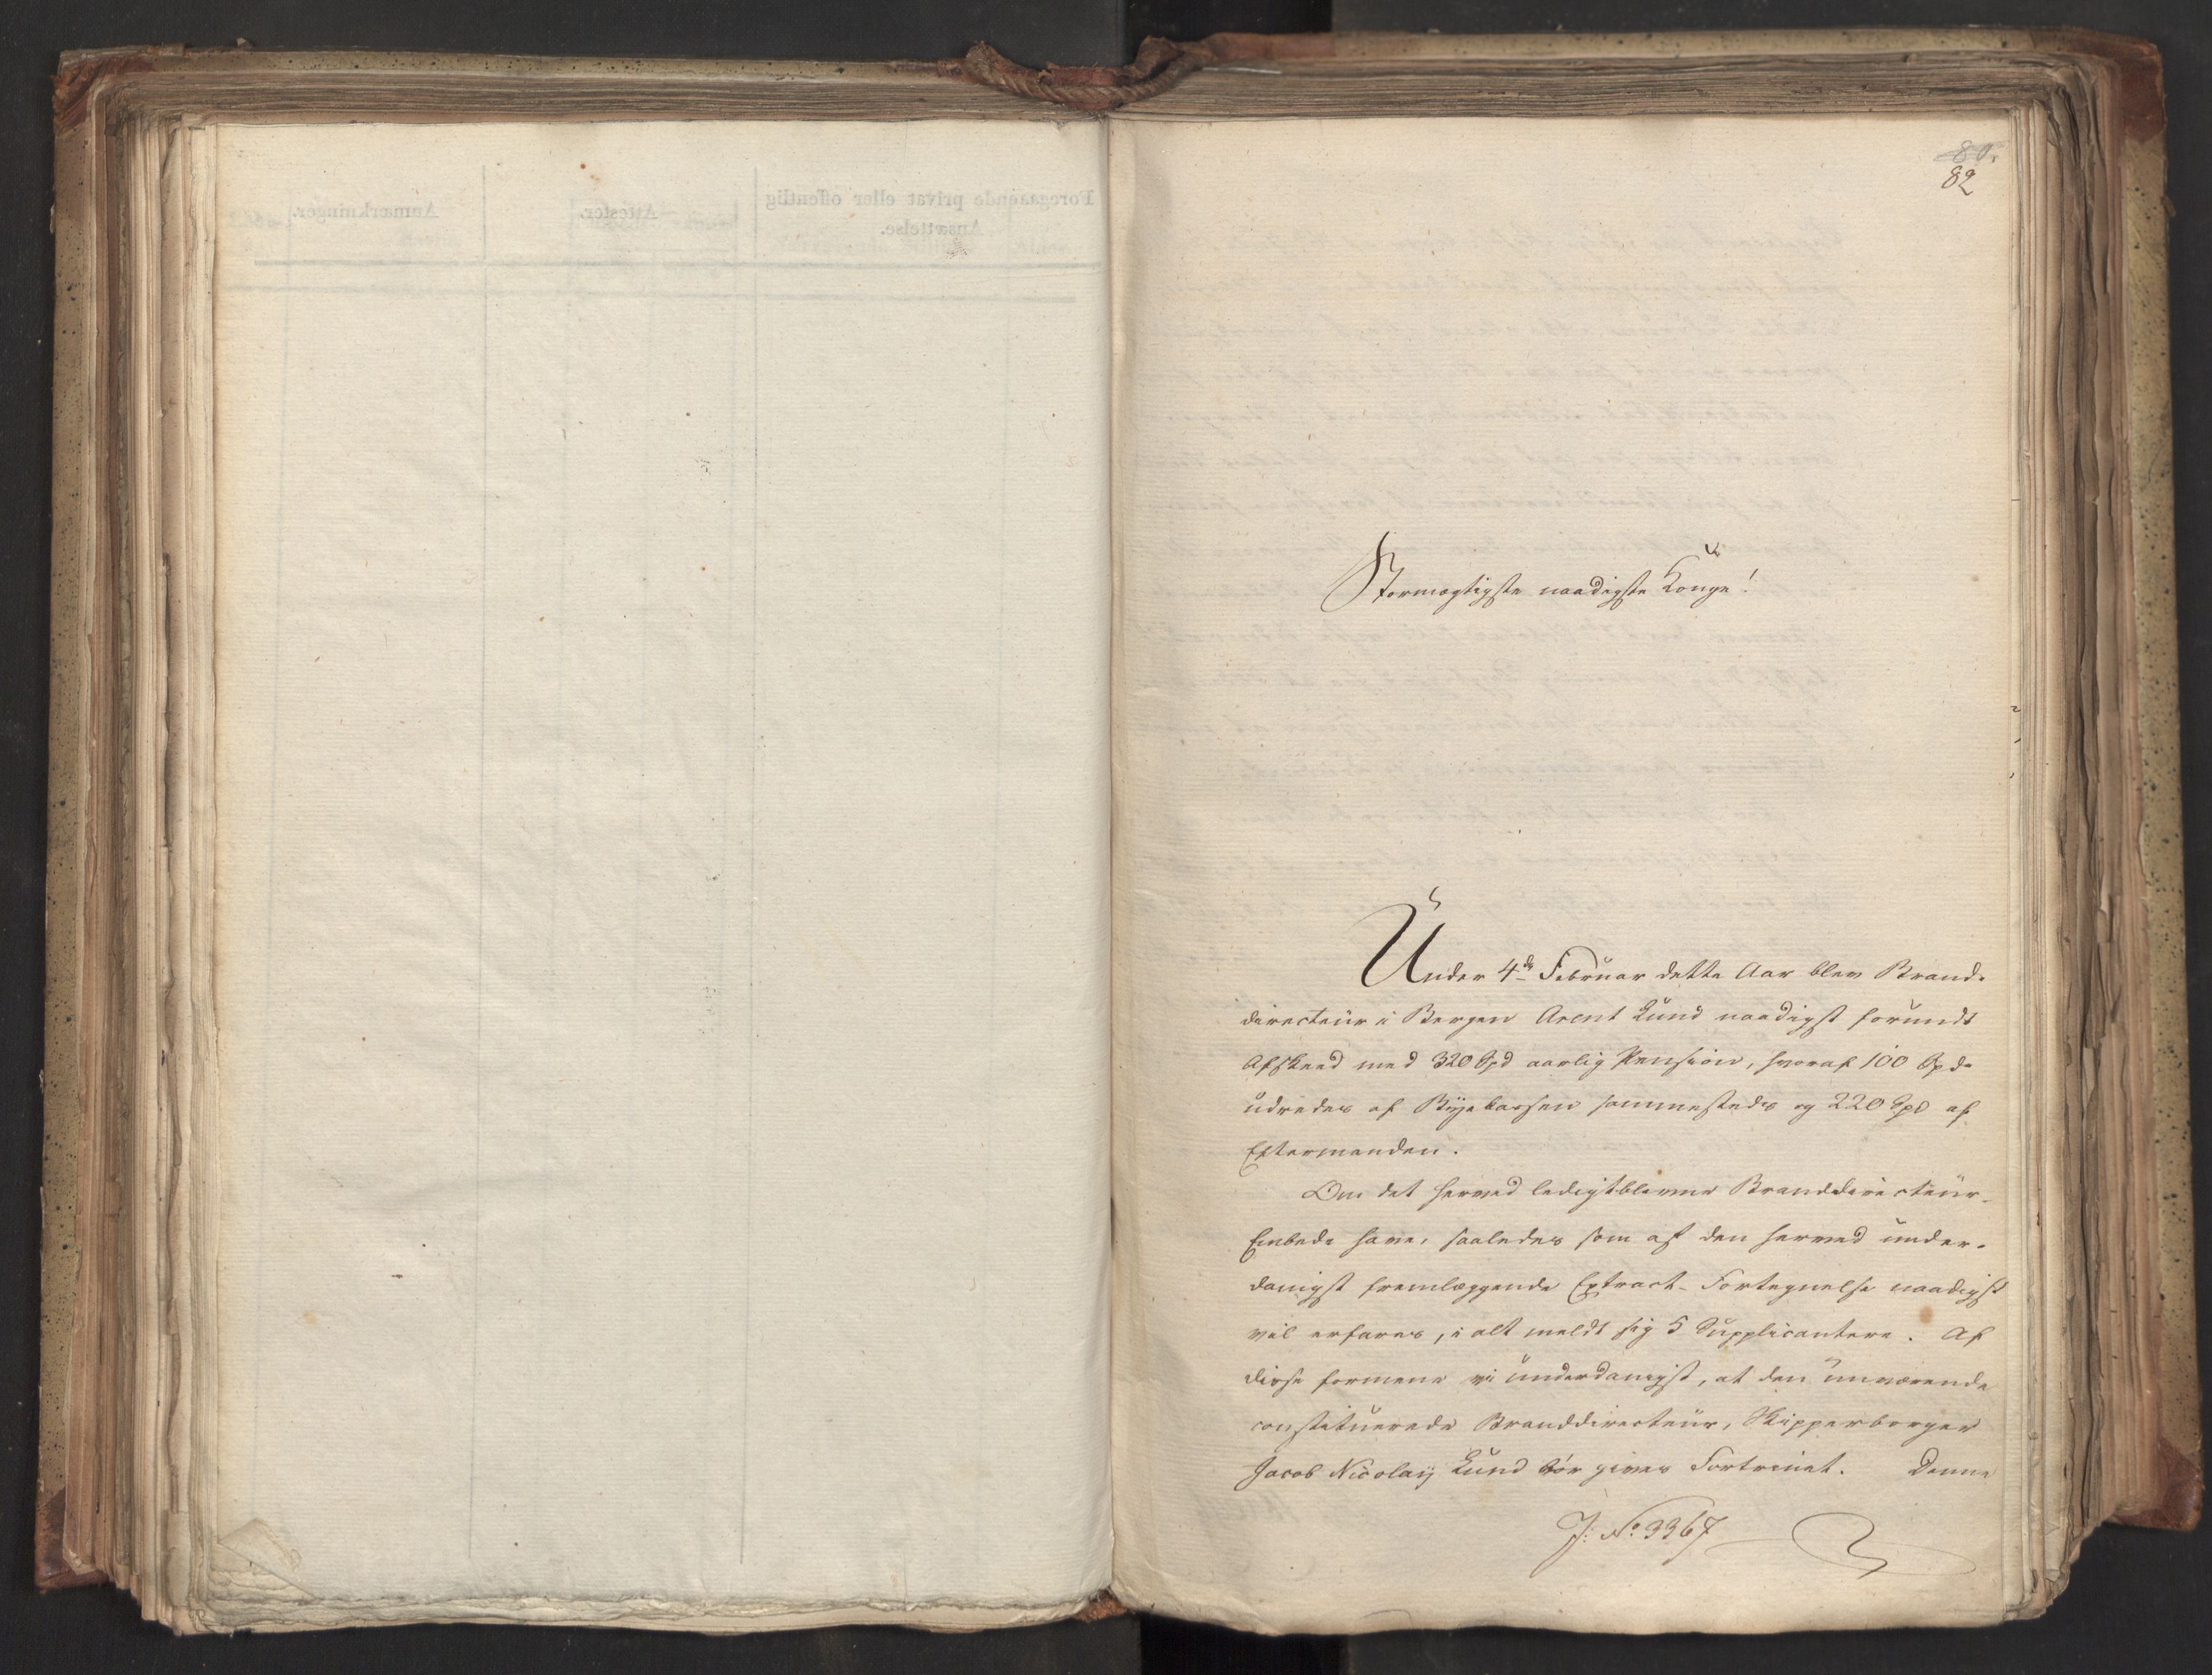 80.
82
Stormægtigste naadigste Konge!
Under 4de Februar dette Aar blev Brand-
directeur i Bergen Arent Lund naadigst forundt
Afskeed med 320 Spd aarlig Pension, hvoraf 100 Spd.
udredes af Byekassen sammesteds og 220 Spd af
Eftermanden.
Om det herved ledigtblevne Branddirecteur-
Embede have, saaledes som af den herved under-
danigst fremlæggende Extract-Fortegnelse naadigst
vil erfares, i alt meldt sig 5 Supplicantere. Af
disse formene vi underdanigst, at den nuværende
constituerede Branddirecteur, Skipperborger
Jacob Nicolaij Lund bør gives Fortrinet. Denne
J: No. 3367
Foregaaende privat eller offentlig
Ansættelse.
Attester.
Anmærkninger.